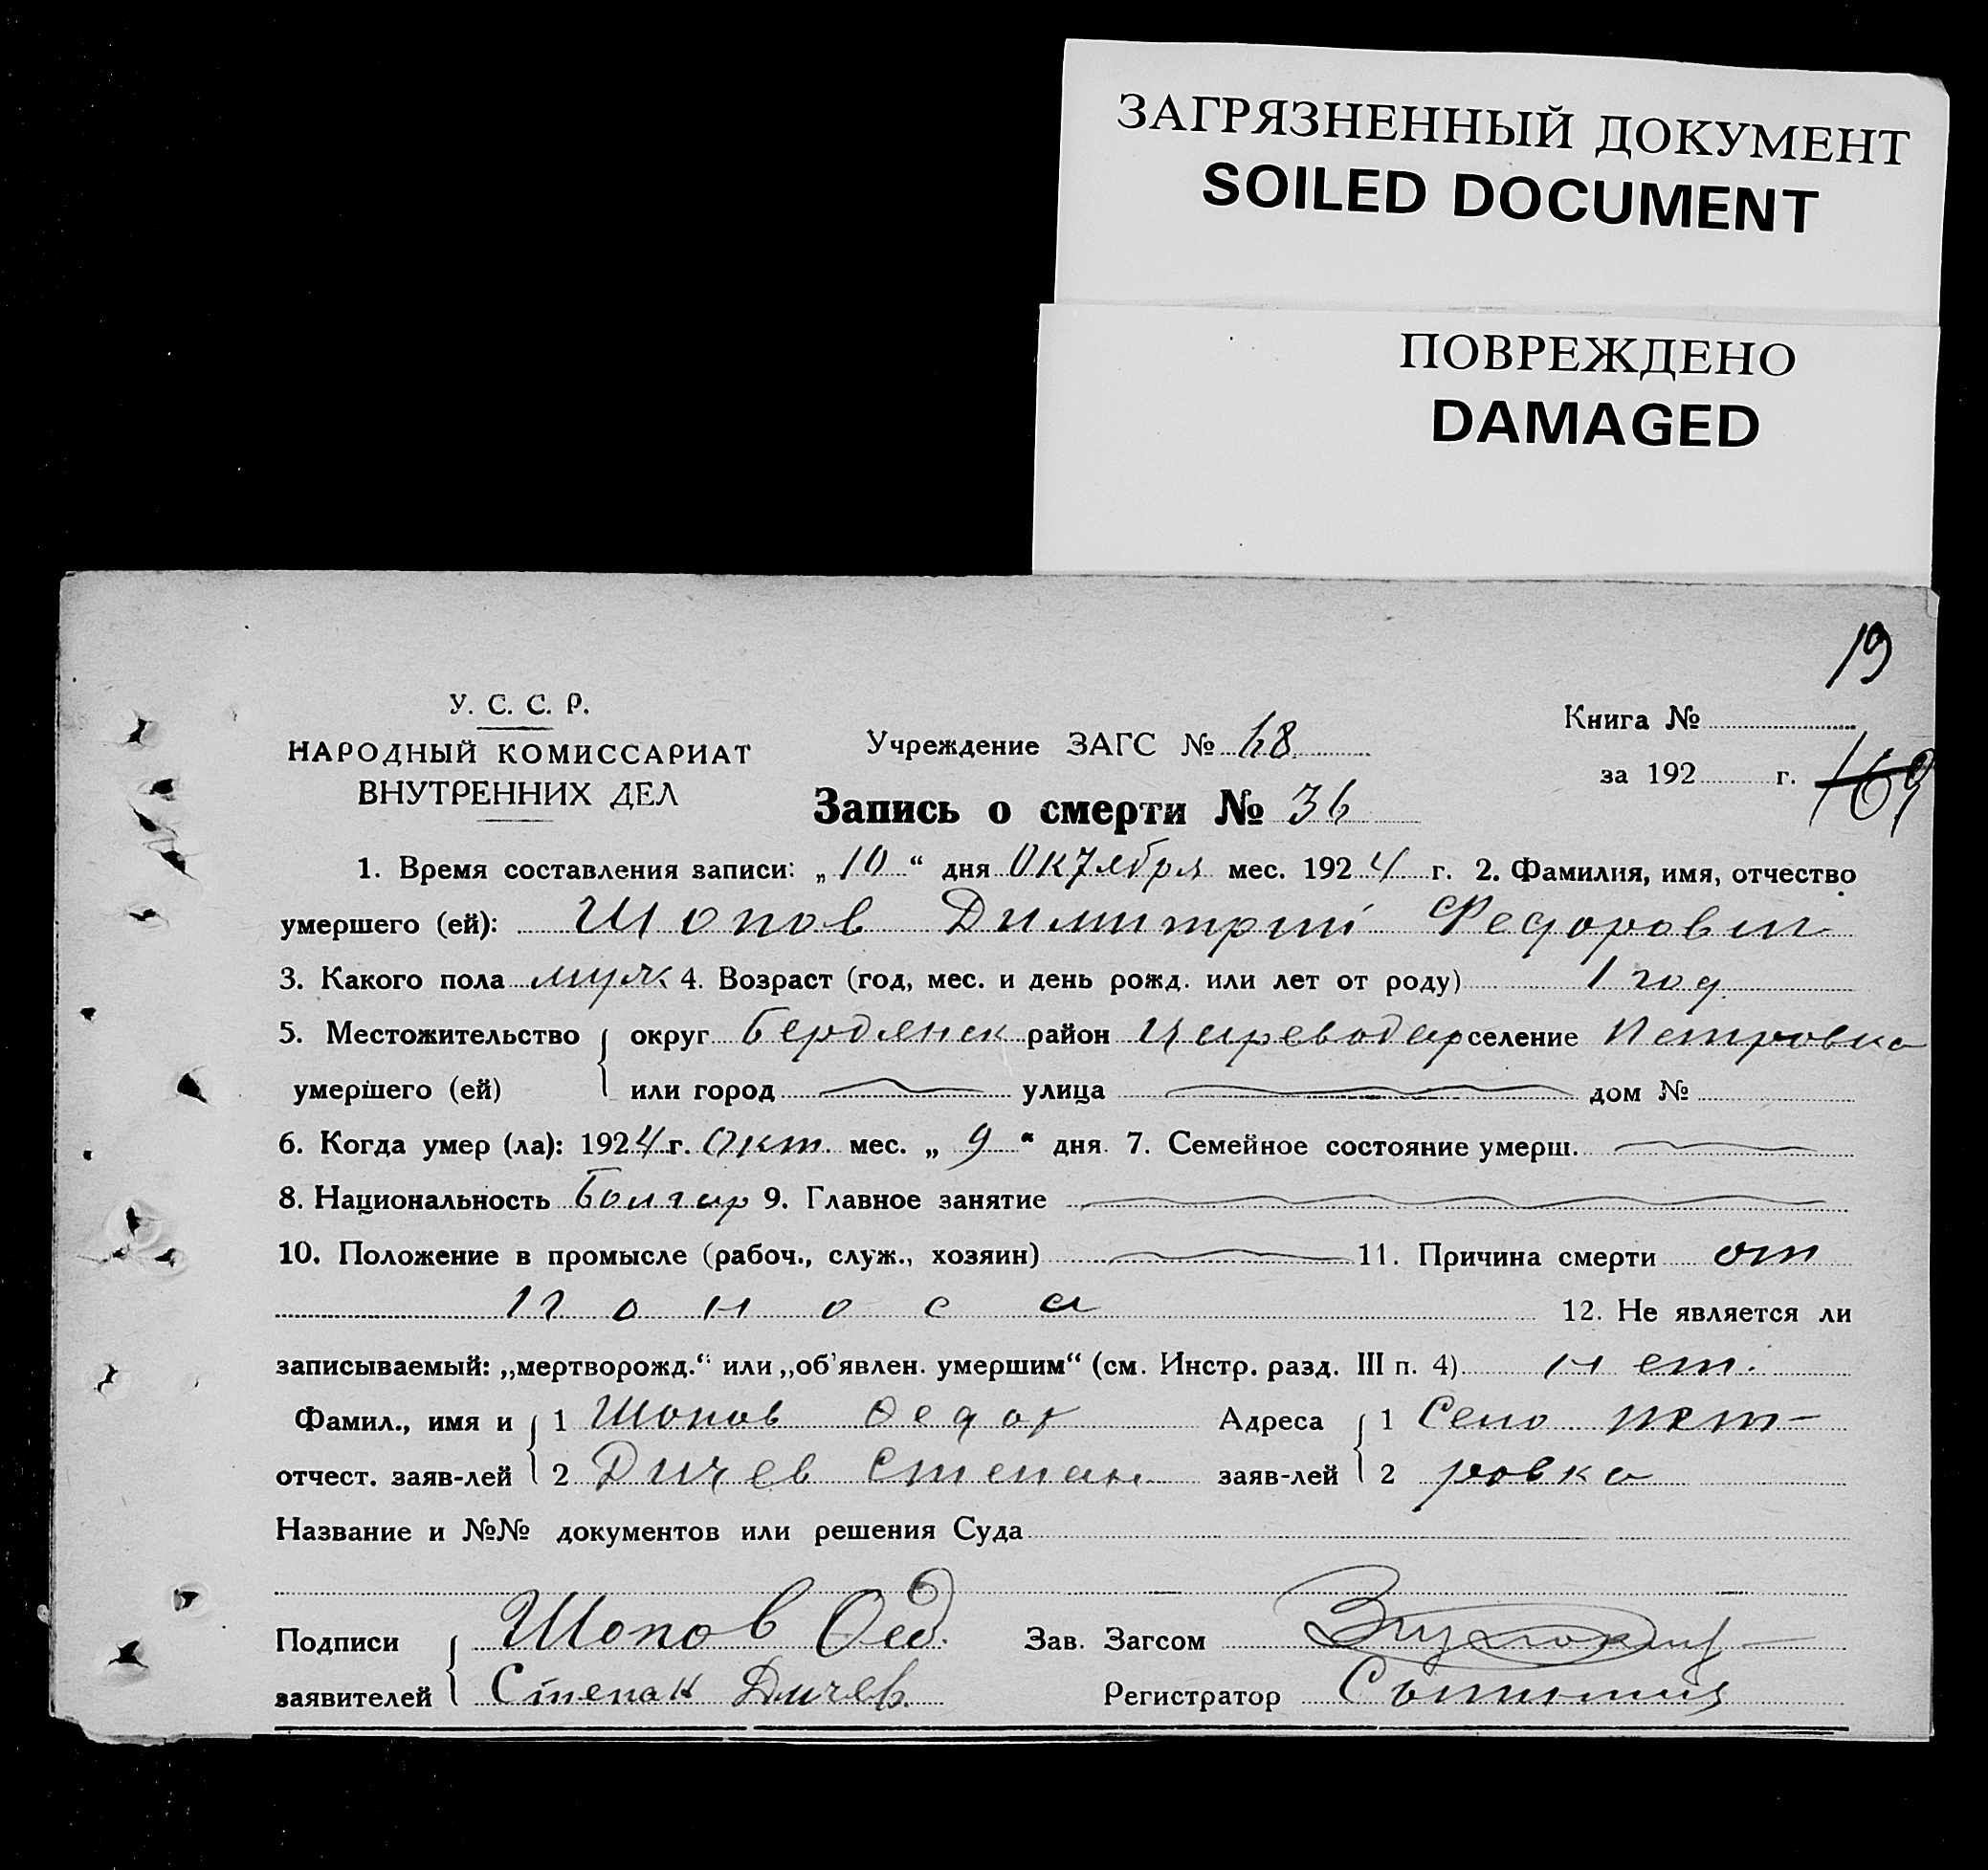 ЗАГРЯЗНЕННЫЙ ДОКУМЕНТ
SOILED DOCUMENT
ПОВРЕЖДЕНО
DAMAGED
19
У. С. С. Р.
НАРОДНЫЙ КОМИССАРИАТ
ВНУТРЕННИХ ДЕЛ
Учреждение ЗАГС №
Книга №
за 192 г. 169
Запись о смерти № 36
1. Время составления записи: „10“ дня Октября мес. 1924 г. 2. Фамилия, имя, отчество
умершего (ей): Шопов Димитрий Федорович
3. Какого пола муж. 4. Возраст (год, мес. и день рожд. или лет от роду) 1 год.
5. Местожительство округ Бердянск район Цареводар селение Петровка
умершего (ей) или город улица дом №
6. Когда умер (ла): 1924 г. Окт. мес. „9“ дня. 7. Семейное состояние умерш.
8. Национальность Болгар 9. Главное занятие
10. Положение в промысле (рабоч., служ., хозяин) 11. Причина смерти от
поноса 12. Не является ли
записываемый: „мертворожд.“ или „об'явлен. умершим“ (см. Инстр. разд. III п. 4) нет.
Фамил., имя и 1 Шопов Федор Адреса 1 Село Пет-
отчест. заяв-лей 2 Дичев Степан заяв-лей 2 ровка
Название и №№ документов или решения Суда
Подписи Шопов Фед. Зав. Загсом
заявителей Степан Дичев. Регистратор